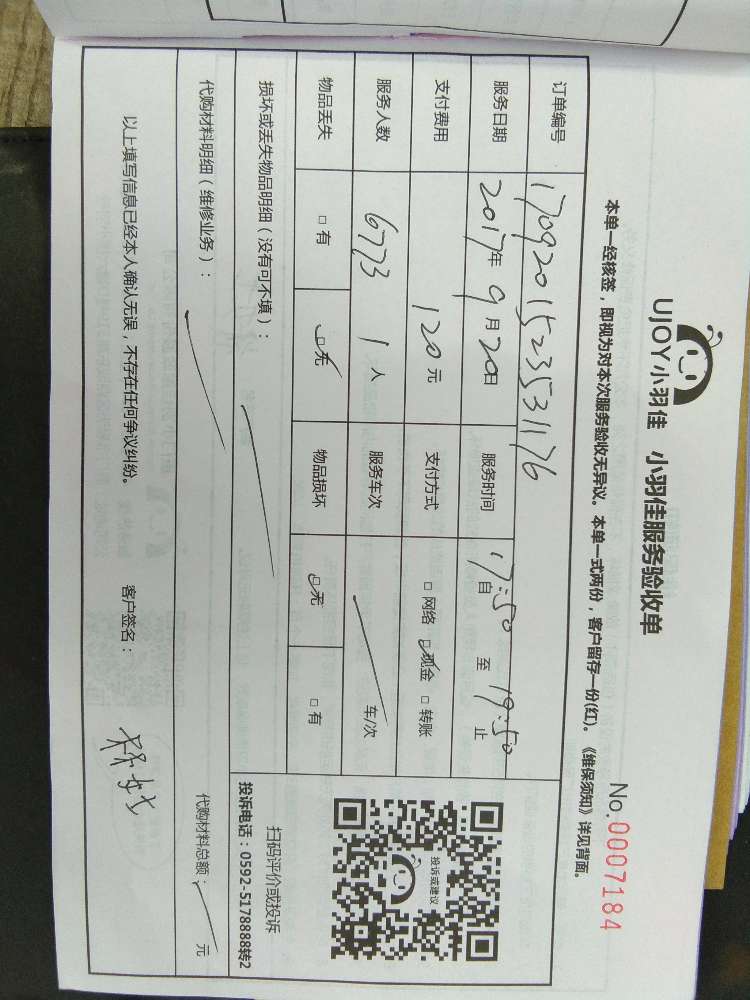 UJOY小羽佳 小羽佳服务验收单
No.0007184
本单一经核签，即视为对本次服务验收无异议。本单一式两份，客户留存一份(红)。《维保须知》详见背面。
订单编号 1709201523531176
服务日期 2017年9月20日 服务时间 17:50自 至 19:50止
支付费用 120元 支付方式 □网络 □现金 □转账
服务人数 6773 1人 服务车次 车/次
物品丢失 □有 □无 物品损坏 □无 □有
损坏或丢失物品明细（没有可不填）：
投诉或建议
扫码评价或投诉
投诉电话：0592-5178888转2
代购材料明细（维修业务）：
代购材料总额： 元
以上填写信息已经本人确认无误，不存在任何争议纠纷。 客户签名：